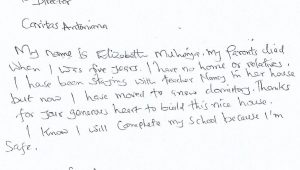 Director
Caritas Antoniana
My name is Elizabeth Muhonja. My Parents died
when I was five years. I have no home or relatives.
I have been staying with teacher Nancy in her house
but now I have moved to new dormitory. Thanks
for your generous heart to build this nice house.
I know I will complete my school because I'm
Safe.